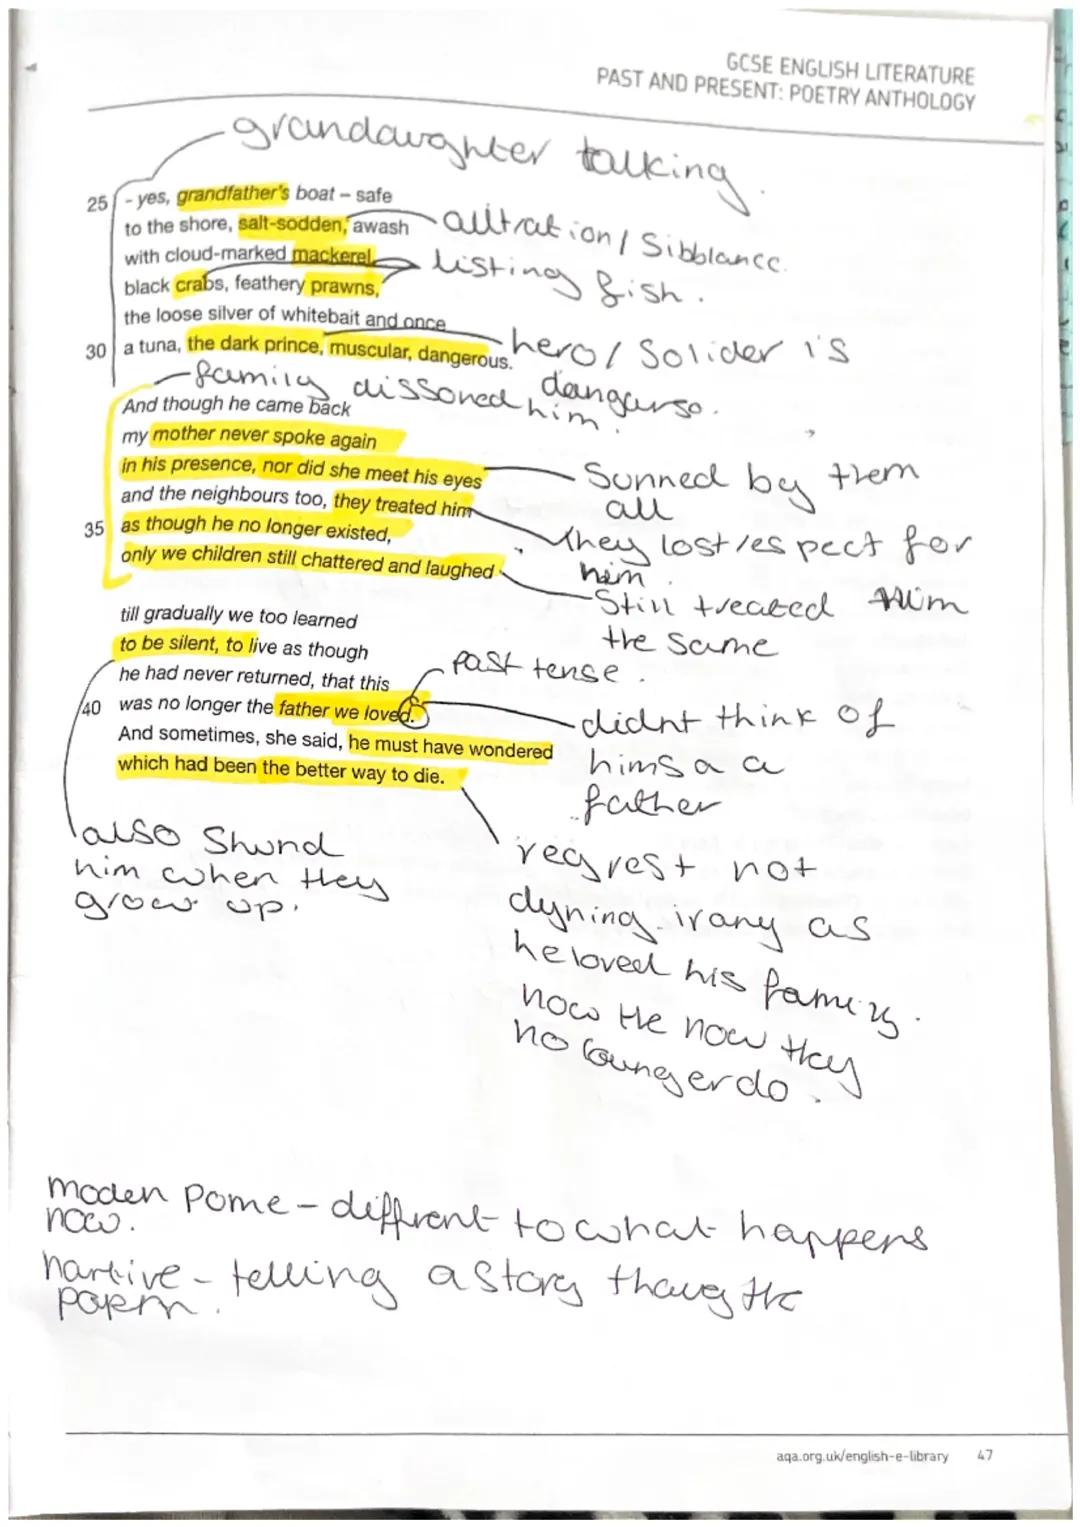 GCSE ENGLISH LITERATURE
PAST AND PRESENT: POETRY ANTHOLOGY
grandaughter talking.
25 - yes, grandfather's boat – safe
to the shore, salt-sodden, awash
alltration / Sibblance.
with cloud-marked mackerel,
listing fish.
black crabs, feathery prawns,
the loose silver of whitebait and once
30 a tuna, the dark prince, muscular, dangerous.
hero / Solider is
dangurso.
family dissoned him.
And though he came back
my mother never spoke again
in his presence, nor did she meet his eyes
Sunned by them
all
and the neighbours too, they treated him
35 as though he no longer existed,
they lost respect for
him.
only we children still chattered and laughed
Still treated him
the same
till gradually we too learned
to be silent, to live as though
he had never returned, that this
past tense.
40 was no longer the father we loved.
didnt think of
hims a a
father
And sometimes, she said, he must have wondered
which had been the better way to die.
also Shund
him when they
grow up.
regrest not
dyning. irany as
he loved his family.
now He now they
no loungerdo.
moden Pome - diffrent to what happens
now.
nartive - telling a story thoug the
poem.
aqa.org.uk/english-e-library 47